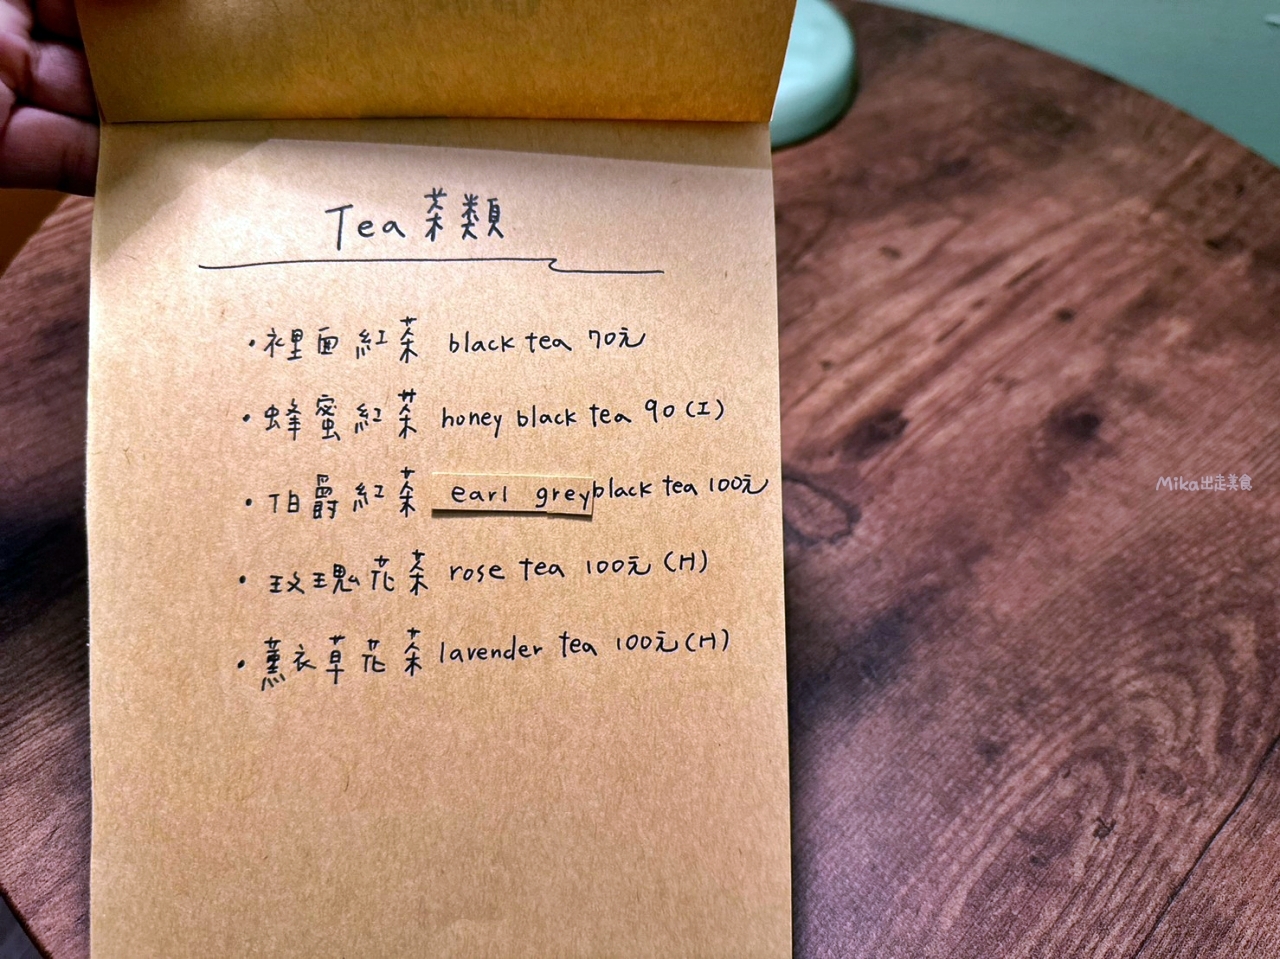 Tea 茶類
・裡面紅茶 black tea 70元
・蜂蜜紅茶 honey black tea 90 (I)
・伯爵紅茶 earl grey black tea 100元
・玫瑰花茶 rose tea 100元 (H)
・薰衣草花茶 lavender tea 100元 (H)
Mika出走美食